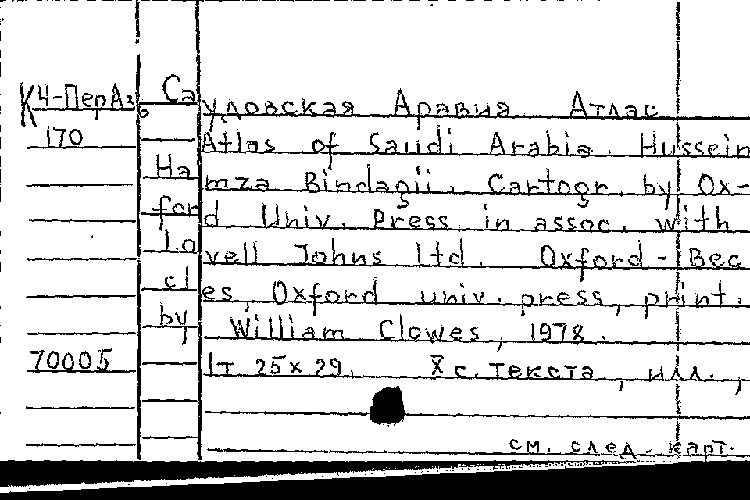 К4-ПерАз Саудовская Аравия Атлас
170 Atlas of Saudi Arabia. Hussein
Hamza Bindagji. Cartogr. by Ox-
ford Univ. Press in assoc. with
Lovell Johns ltd. Oxford - Bec
cles, Oxford univ. press, print.
by William Clowes, 1978.
70005 1т 25x29. X с. текста, илл.,
см. след. карт.